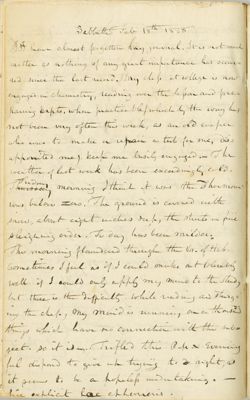 Sabbath Feb 18th 1855
I have almost forgotten my journal. It is not much
matter as nothing of any great importance has occurr-
ed since the last record. My class at college is now
engaged in chemistry, reading over the lesson and pre-
paring expts. when practicable, which by the way has
not been very often this week, as an old
who was to make a for me, dis-
appointed me, keep me busily engaged. The
weather of last week has been exceedingly cold.
morning I think it was the thermom
was below zero. The ground is covered with
snow, about eight inches deep, the streets in fine
sleighing order. To day has been milder.
This morning
Sometimes I feel as if I could make out tolerably
well if I could only apply my mind to the
but there is the difficulty while reading
the class, my mind is running on a thousand
things which have no connection with the sub-
ject. so it is. Trifled this P.M. & Evening
full disposed to give up trying to do right, as
it seems to be a hopeless undertaking. —